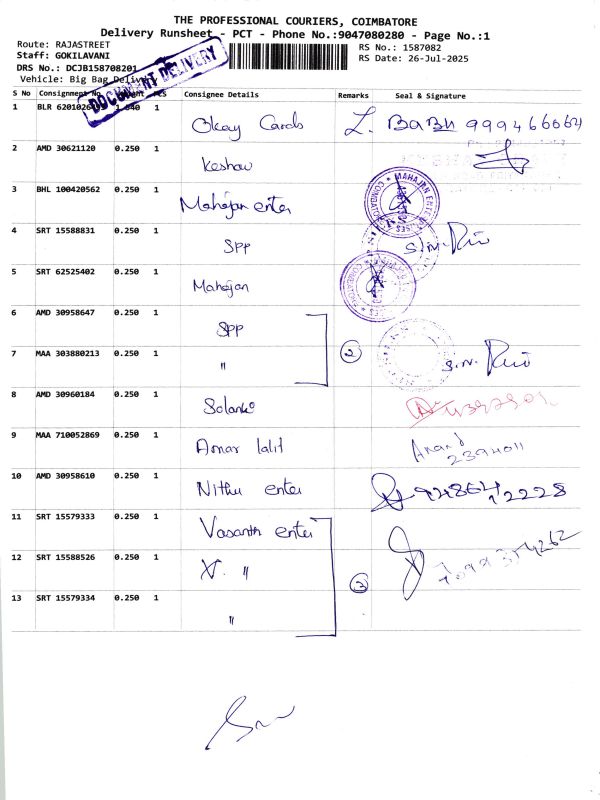 THE PROFESSIONAL COURIERS, COIMBATORE
Delivery Runsheet - PCT - Phone No.:9047080280 - Page No.:1
Route: RAJASTREET
Staff: GOKILAVANI
DRS No.: DCJB158708201
Vehicle: Big Bag Delivery
RS No.: 1587082
RS Date: 26-Jul-2025
DOCUMENT DELIVERY
S No Consignment No PCS Consignee Details Remarks Seal & Signature
1 BLR 1 Okay Cards L. BABU
2 AMD 30621120 0.250 1 Keshav
3 BHL 100420562 0.250 1 Mahajan enter
MAHAJAN ENTERPRISES COIMBATORE
4 SRT 15588831 0.250 1 SPP
5 SRT 62525402 0.250 1 Mahajan
6 AMD 30958647 0.250 1 SPP
7 MAA 303880213 0.250 1 " 2
8 AMD 30960184 0.250 1 Solanki
9 MAA 710052869 0.250 1 Amar lalit Anand
2394011
10 AMD 30958610 0.250 1 Nithu enter
11 SRT 15579333 0.250 1 Vasanth enter
12 SRT 15588526 0.250 1 V. " 3
13 SRT 15579334 0.250 1 "